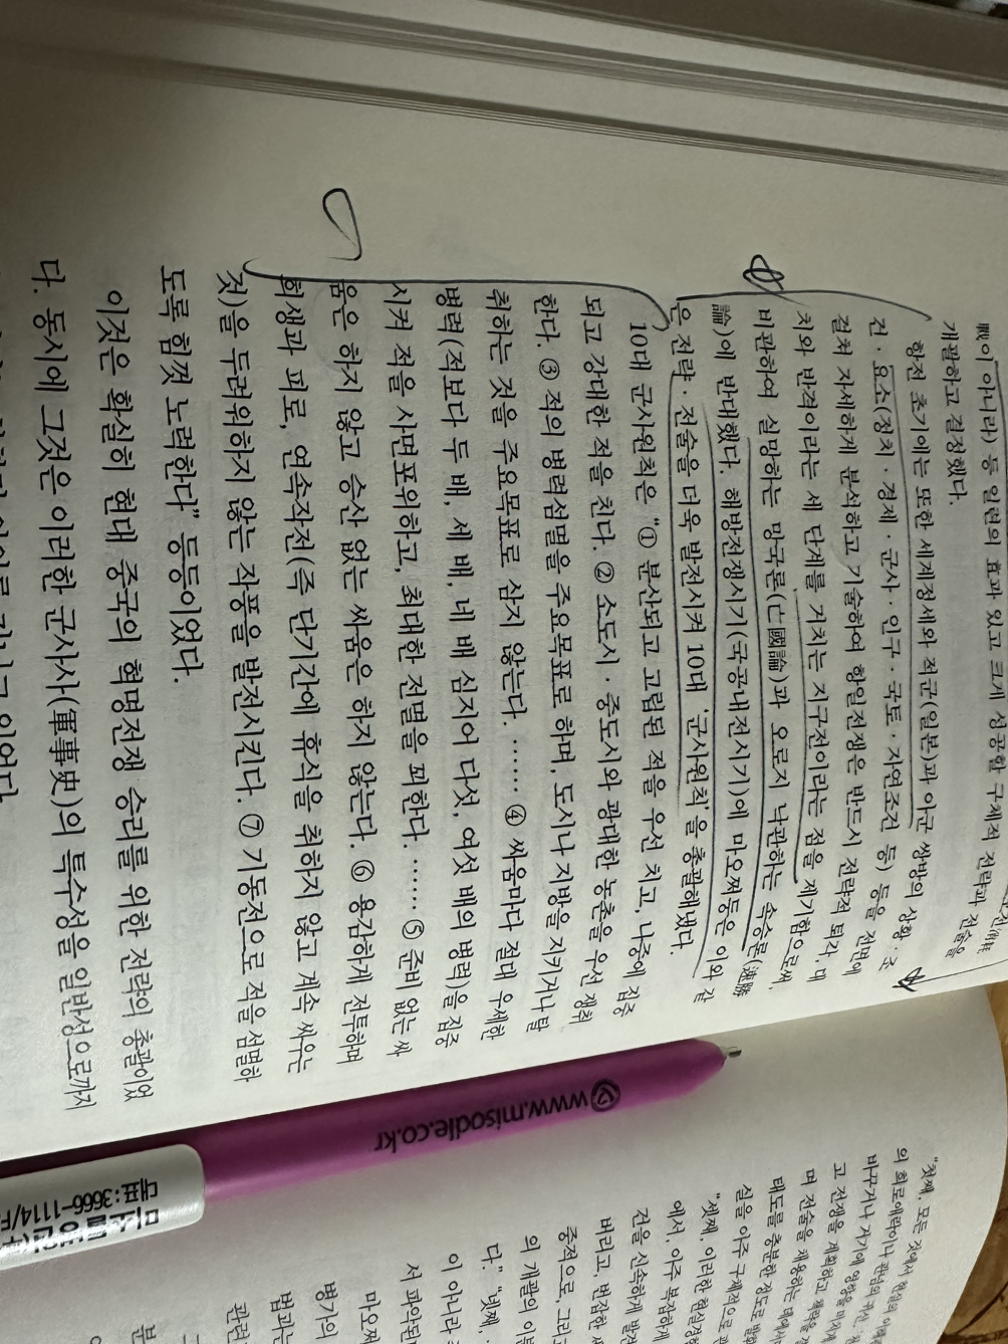 戰이 아니라) 등 일련의 효과 있고 크게 성공할 구체적 전략과 전술을
개괄하고 결정했다.
항전 초기에는 또한 세계정세와 적군(일본)과 아군 쌍방의 상황·조
건·요소(정치·경제·군사·인구·국토·자연조건 등) 등을 전면에
걸쳐 자세하게 분석하고 기술하여 항일전쟁은 반드시 전략적 퇴각, 대
치와 반격이라는 세 단계를 거치는 지구전이라는 점을 제기함으로써,
비관하여 실망하는 망국론(亡國論)과 오로지 낙관하는 속승론(速勝
論)에 반대했다. 해방전쟁시기(국공내전시기)에 마오쩌둥은 이와 같
은 전략·전술을 더욱 발전시켜 10대 '군사원칙'을 총괄해냈다.
10대 군사원칙은 "① 분산되고 고립된 적을 우선 치고, 나중에 집중
되고 강대한 적을 친다. ② 소도시·중도시와 광대한 농촌을 우선 쟁취
한다. ③ 적의 병력섬멸을 주요목표로 하며, 도시나 지방을 지키거나 탈
취하는 것을 주요목표로 삼지 않는다. …… ④ 싸움마다 절대 우세한
병력(적보다 두 배, 세 배, 네 배 심지어 다섯, 여섯 배의 병력)을 집중
시켜 적을 사면포위하고, 최대한 전멸을 꾀한다. …… ⑤ 준비 없는 싸
움은 하지 않고 승산 없는 싸움은 하지 않는다. ⑥ 용감하게 전투하며
희생과 피로, 연속작전(즉 단기간에 휴식을 취하지 않고 계속 싸우는
것)을 두려워하지 않는 작풍을 발전시킨다. ⑦ 기동전으로 적을 섬멸하
도록 힘껏 노력한다" 등등이었다.
이것은 확실히 현대 중국의 혁명전쟁 승리를 위한 전략의 총괄이었
다. 동시에 그것은 이러한 군사사(軍事史)의 특수성을 일반성으로까지
www.misodle.co.kr
대표:3666-1114/F
"첫째, 모든 것에서 현실의
의 희로애락이나
바꾸거나 거기에 영향을 미치게
고 전쟁을 계획하고
며 전술을 채용하는 데에서
태도를 충분한 정도로
실을 아주 구체적으로
"셋째, 이러한
에서, 아주 복잡하게
건을 신속하게
버리고, 번잡한
중적으로, 그리고
의 개괄의
다." "넷째,
이 아니라
서 파악된
마오쩌
병기의
범과는
관련
분